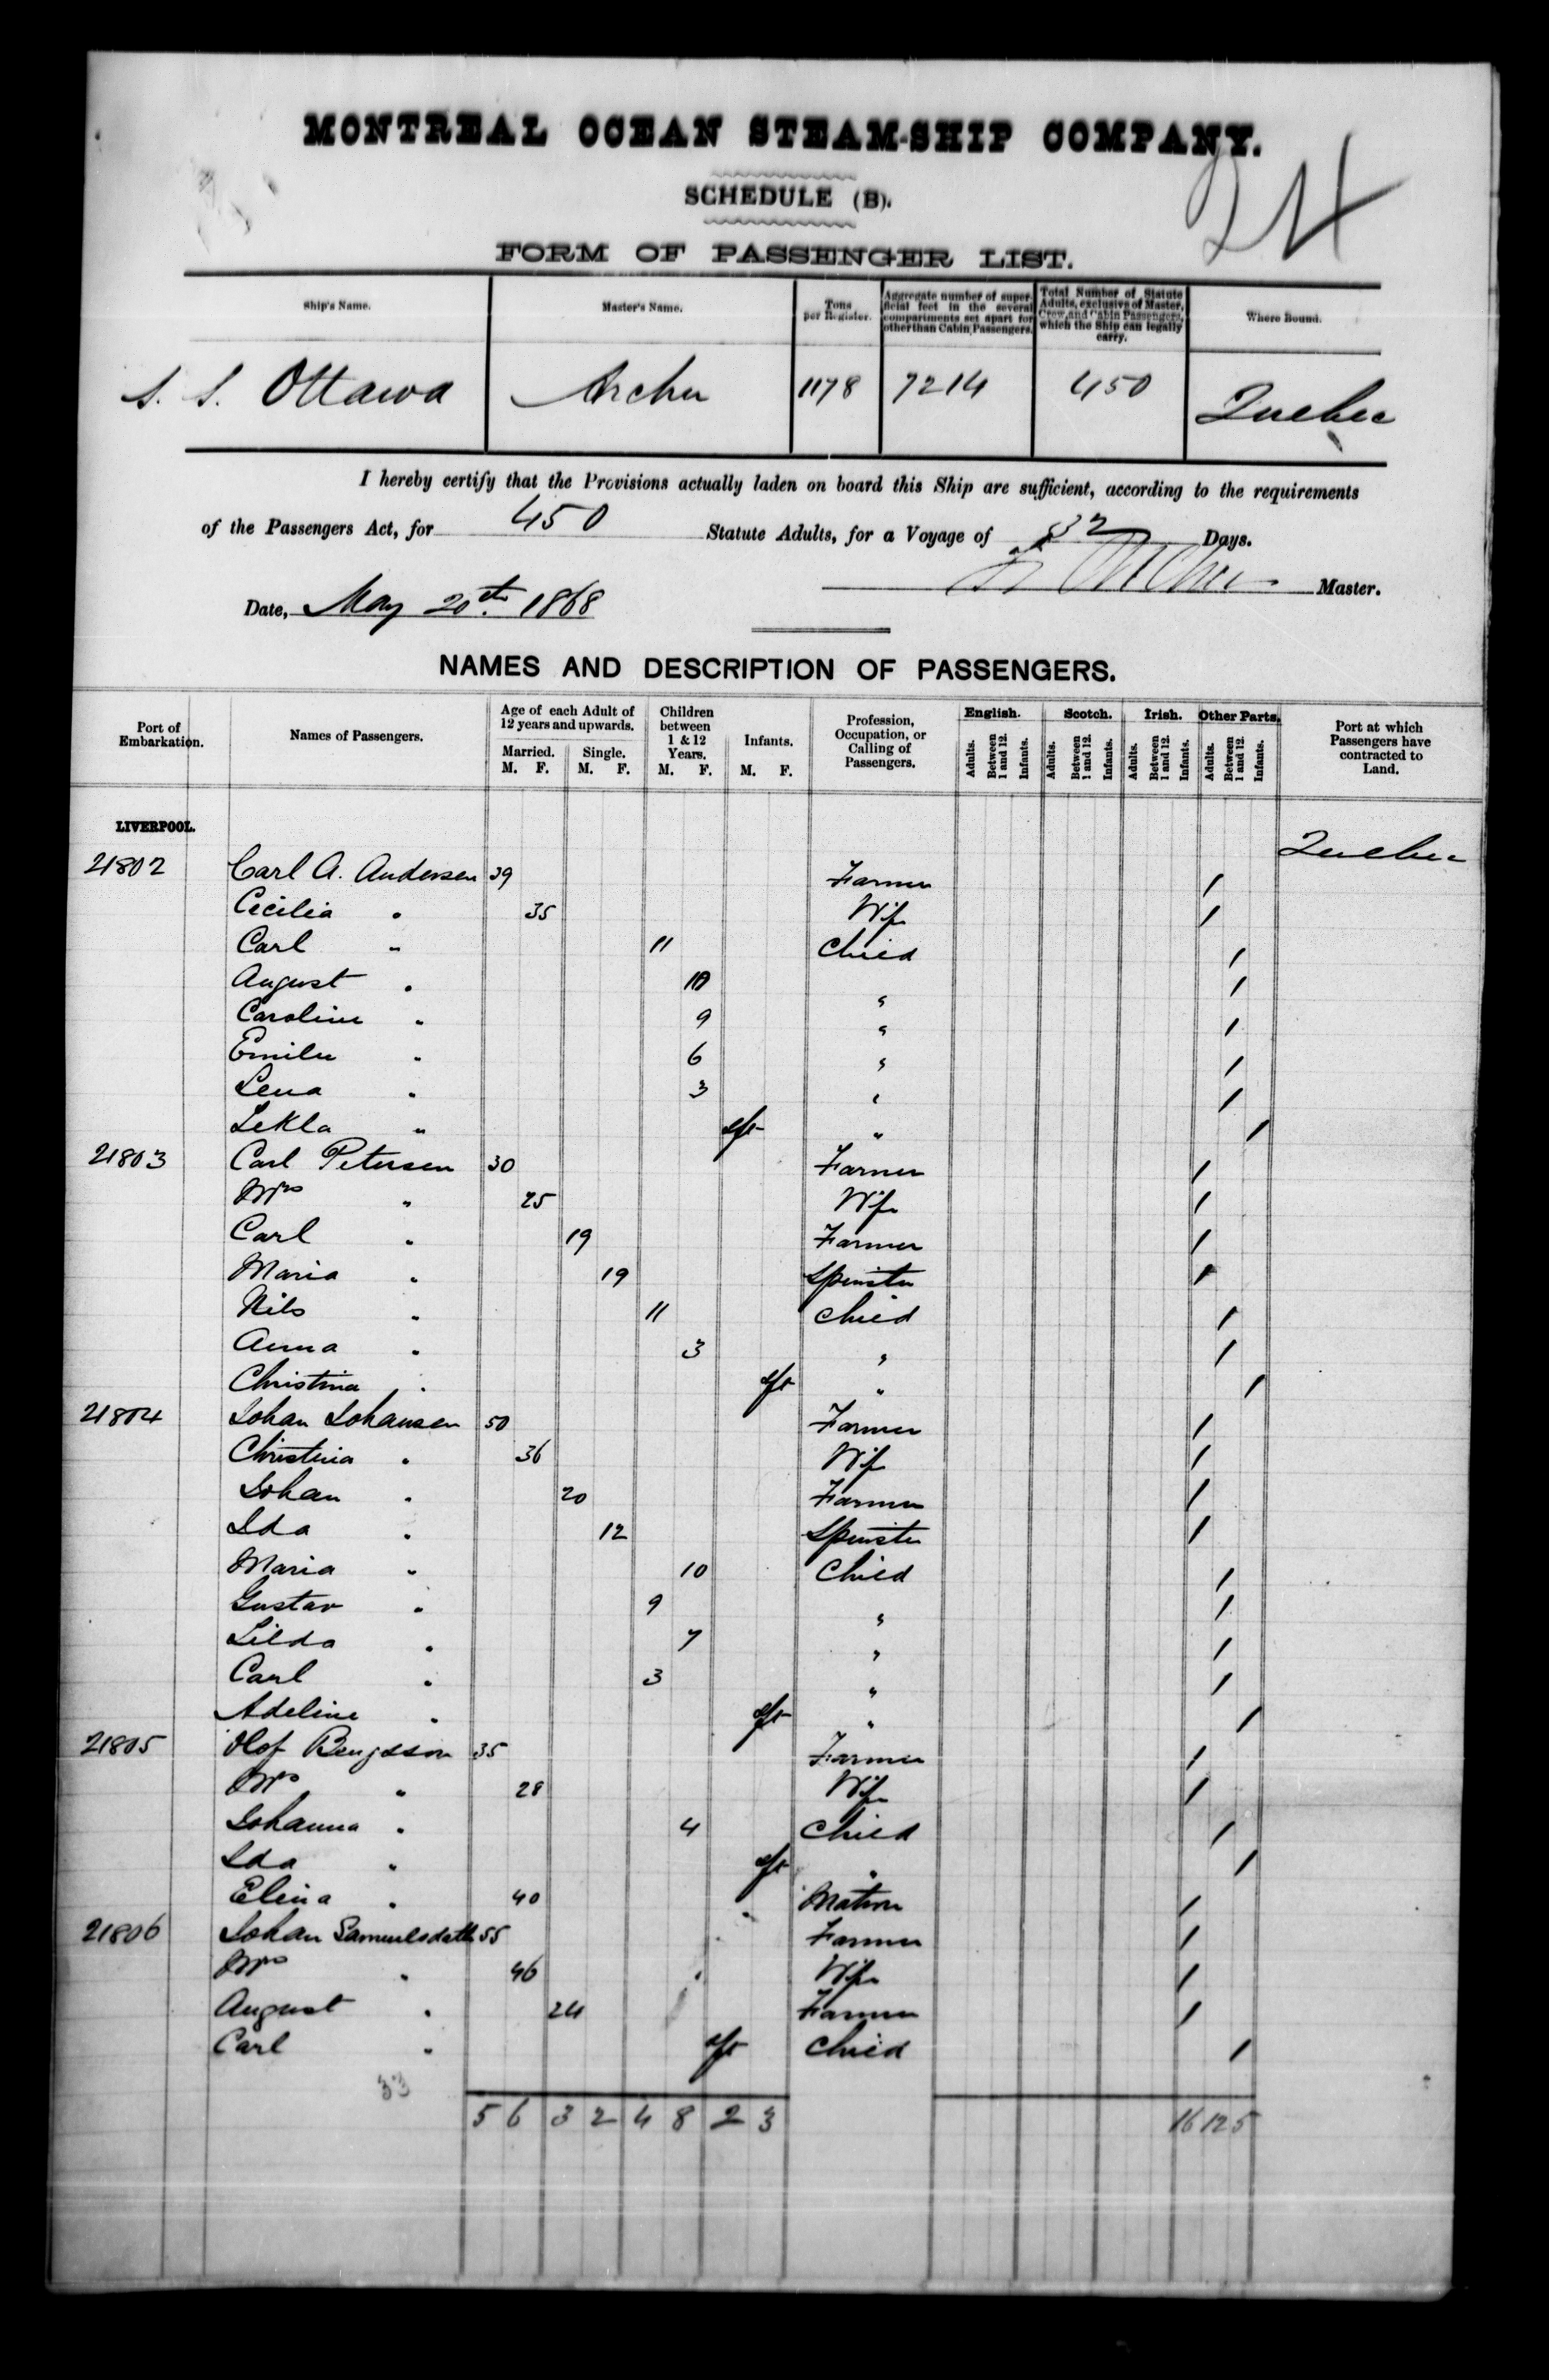 MONTREAL OCEAN STEAM-SHIP COMPANY.
SCHEDULE (B).
24
FORM OF PASSENGER LIST.
Ship's Name. Master's Name. Tons per Register. Aggregate number of superficial feet in the several compartments set apart for other than Cabin Passengers. Total Number of Statute Adults, exclusive of Master, Crew, and Cabin Passengers, which the Ship can legally carry. Where Bound.
S. S. Ottawa Archer 1178 7214 450 Quebec
I hereby certify that the Provisions actually laden on board this Ship are sufficient, according to the requirements
of the Passengers Act, for 450 Statute Adults, for a Voyage of 32 Days.
Archer Master.
Date, May 20th 1868
NAMES AND DESCRIPTION OF PASSENGERS.
Port of Embarkation. Names of Passengers. Age of each Adult of 12 years and upwards. Married. M. F. Single. M. F. Children between 1 & 12 Years. M. F. Infants. M. F. Profession, Occupation, or Calling of Passengers. English. Adults. Between 1 and 12. Infants. Scotch. Adults. Between 1 and 12. Infants. Irish. Adults. Between 1 and 12. Infants. Other Parts. Adults. Between 1 and 12. Infants. Port at which Passengers have contracted to Land.
LIVERPOOL. Quebec
21802 Carl A. Andersen 39 Farmer /
Cecilia " 35 Wife /
Carl " 11 Child /
August " 10 " /
Caroline " 9 " /
Emilie " 6 " /
Lena " 3 " /
Tekla " Inft " /
21803 Carl Petersen 30 Farmer /
Mrs " 25 Wife /
Carl " 19 Farmer /
Maria " 19 Spinster /
Nils " 11 Child /
Anna " 3 " /
Christina " Inft " /
21804 Johan Johansen 50 Farmer /
Christina " 36 Wife /
Johan " 20 Farmer /
Ida " 12 Spinster /
Maria " 10 Child /
Gustav " 9 " /
Tilda " 7 " /
Carl " 3 " /
Adeline " Inft " /
21805 Olof Bengsson 35 Farmer /
Mrs " 28 Wife /
Johanna " 4 Child /
Ida " Inft " /
Elina " 40 Matron /
21806 Johan Samuelsdatt 55 Farmer /
Mrs " 46 Wife /
August " 24 Farmer /
Carl " Inft Child /
33
5 6 3 2 4 8 2 3 16 12 5